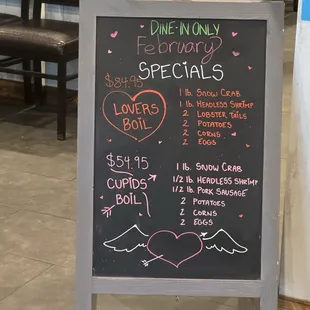 DINE-IN ONLY
February
SPECIALS
$84.95
LOVERS
BOIL
1 lb. SNOW CRAB
1 lb. HEADLESS SHRIMP
2 LOBSTER TAILS
2 POTATOES
2 CORNS
2 EGGS
$54.95
CUPIDS
BOIL
1 lb. SNOW CRAB
1/2 lb. HEADLESS SHRIMP
1/2 lb. PORK SAUSAGE
2 POTATOES
2 CORNS
2 EGGS